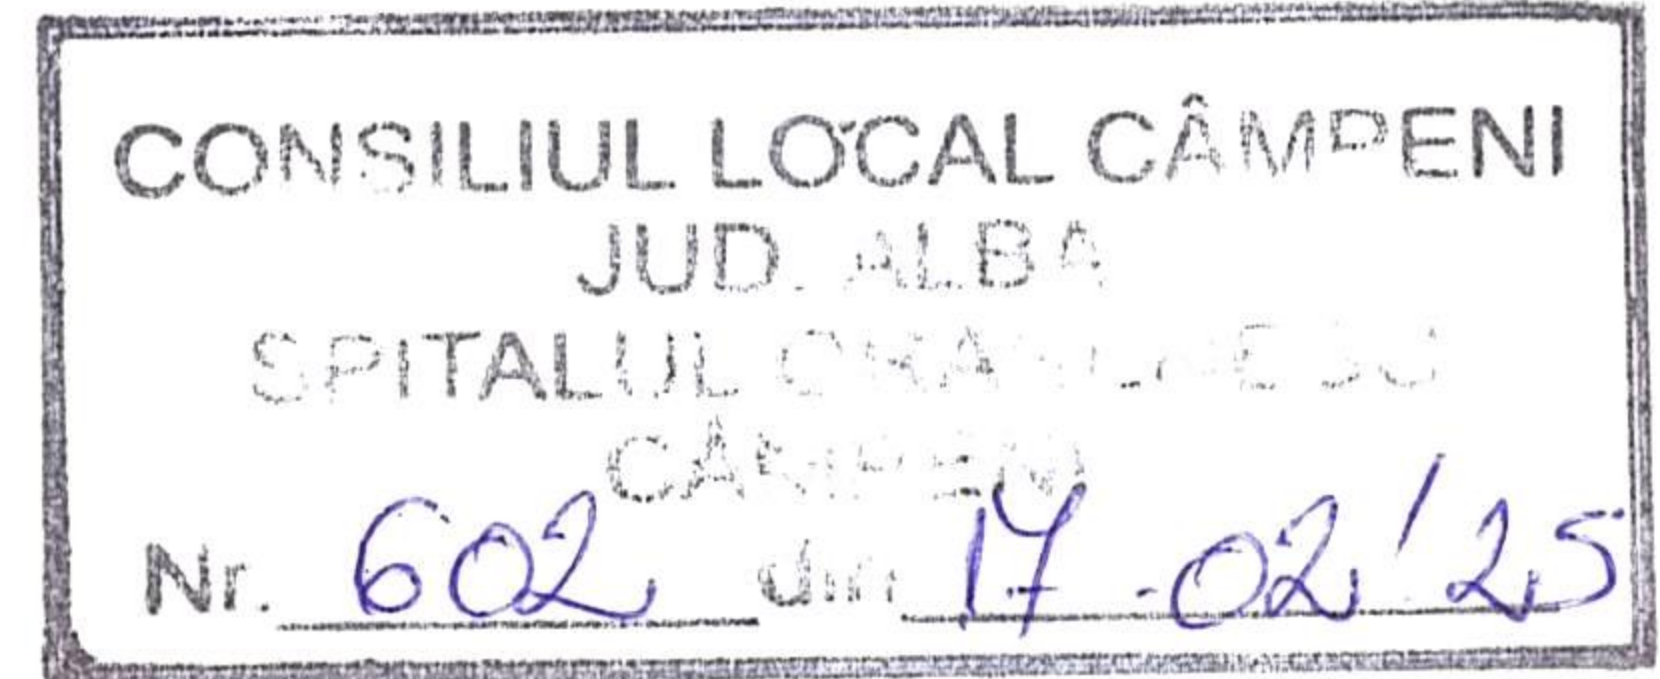 CONSILIUL LOCAL CÂMPENI
JUD. ALBA
SPITALUL ORĂȘENESC
CÂMPENI
Nr. 602 din 17.02/25